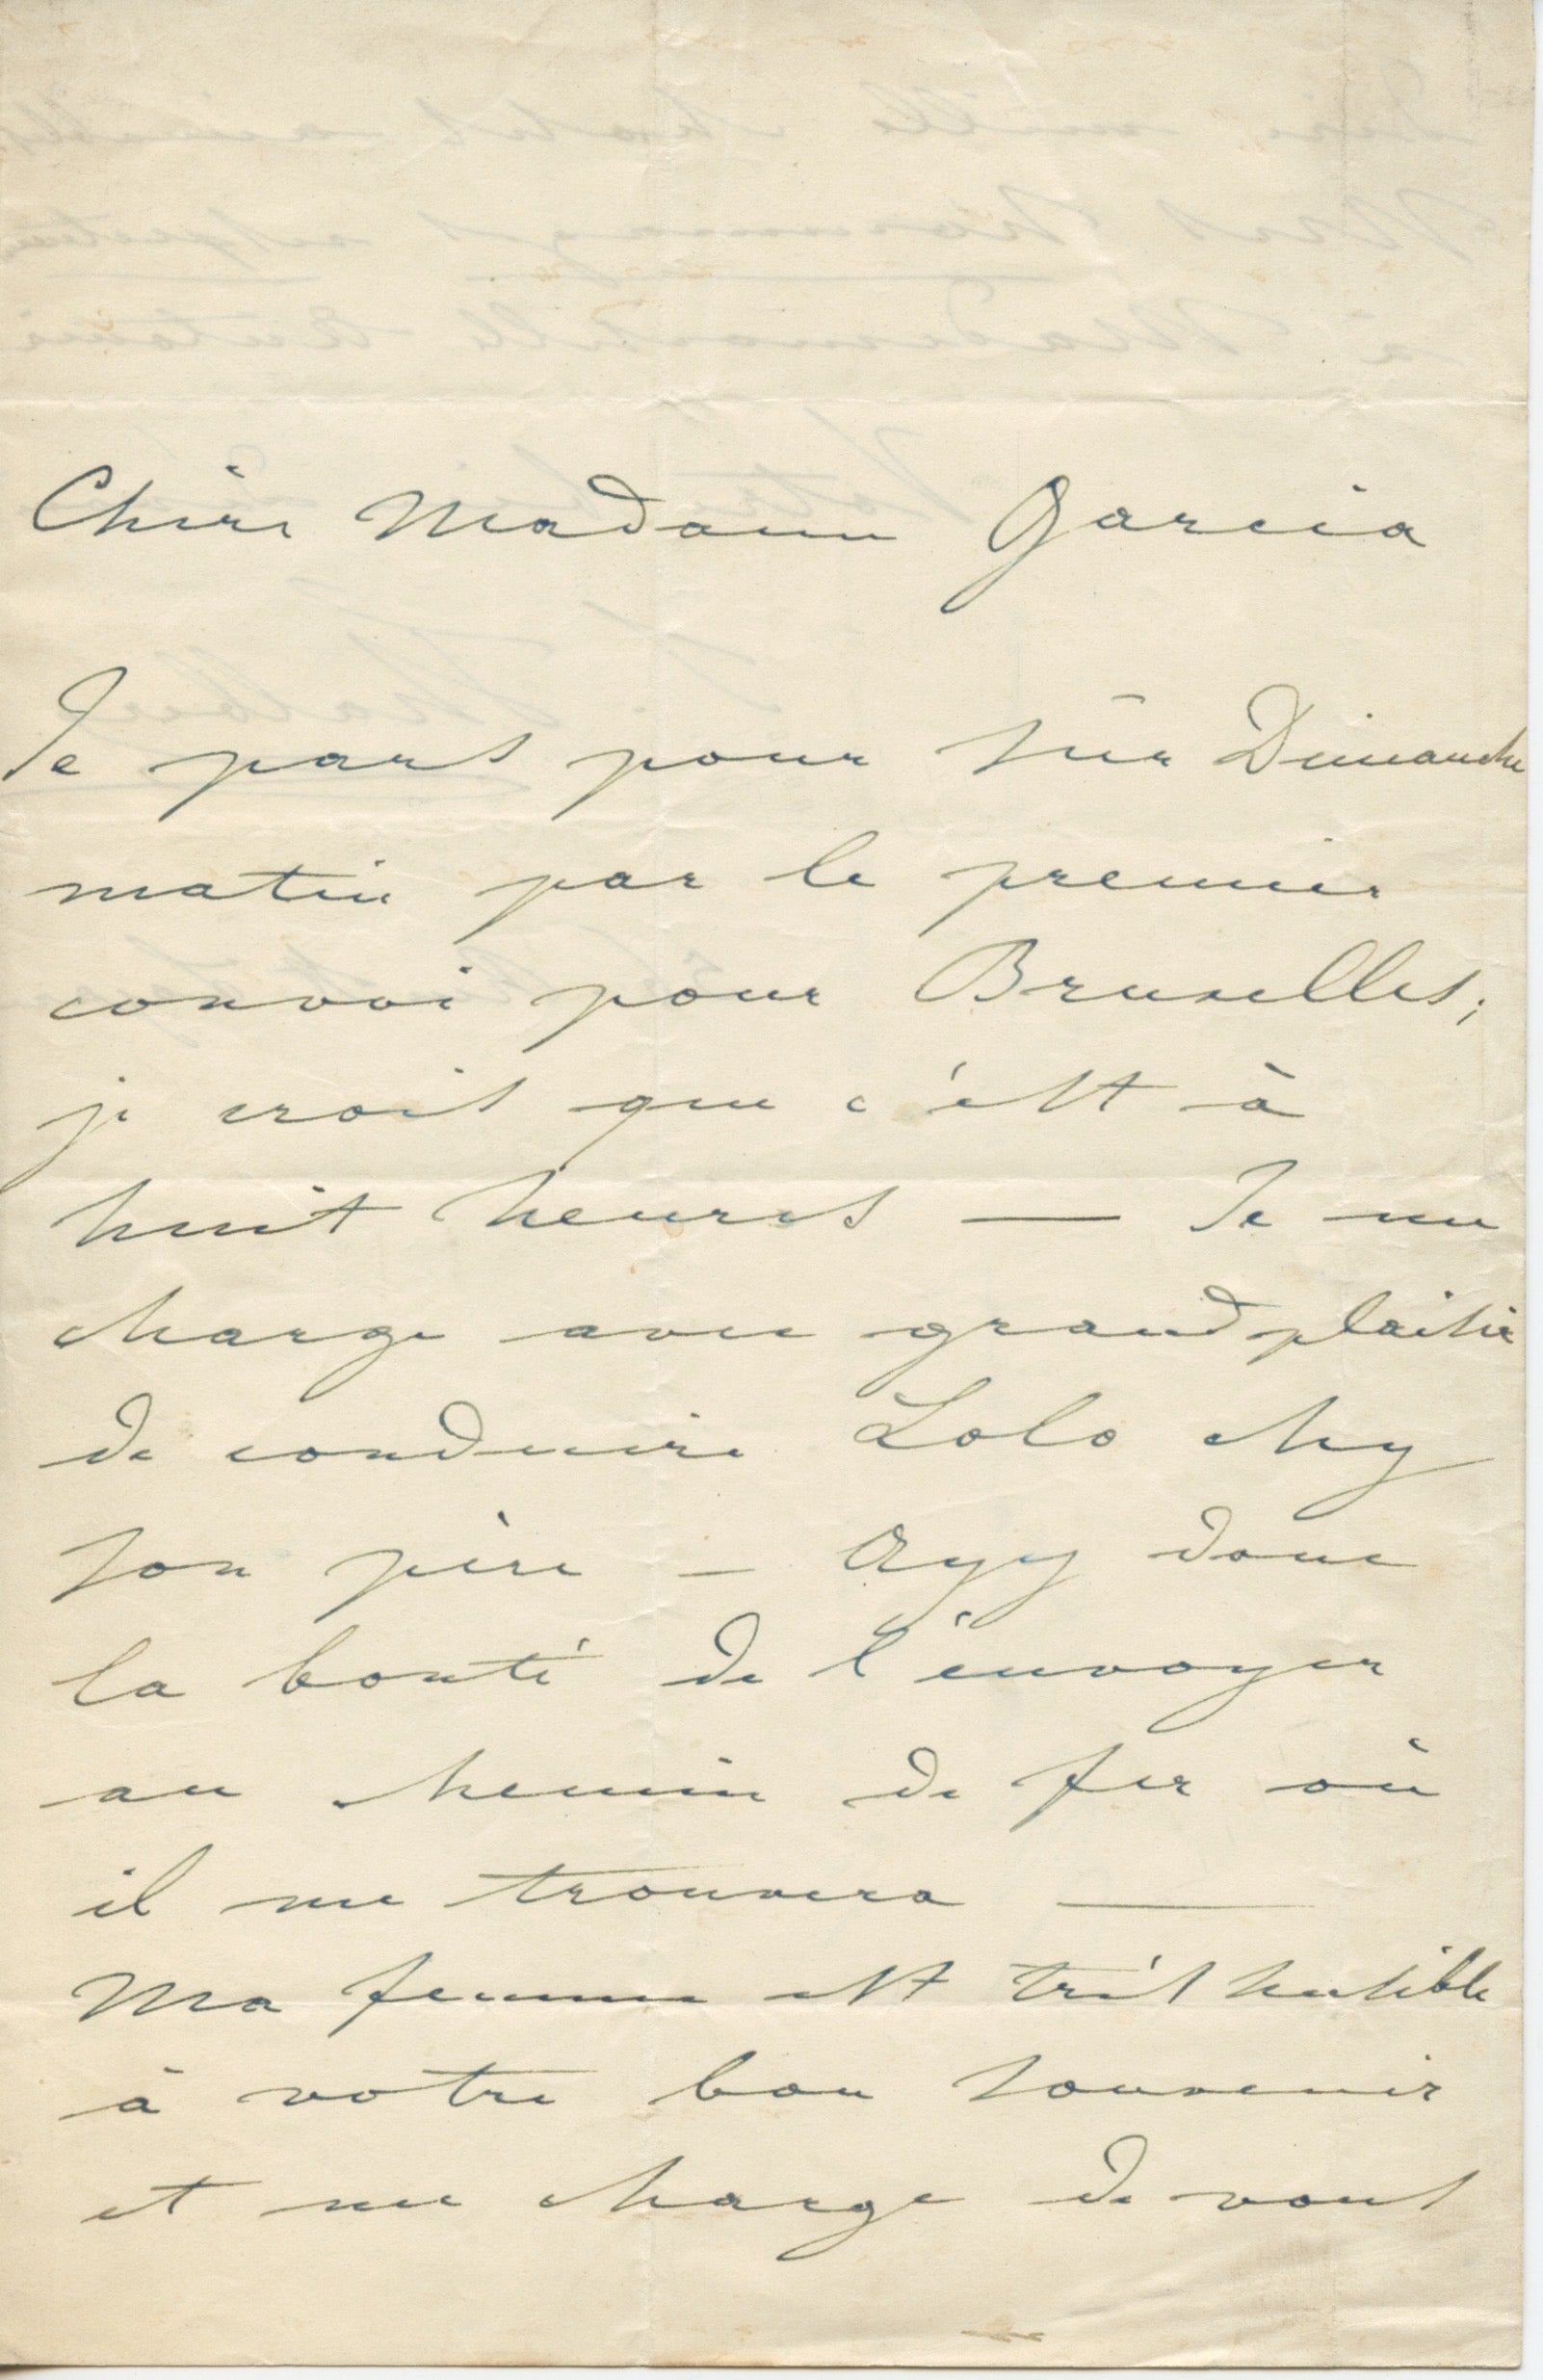 Chère Madame Garcia
Je pars pour sûr Dimanche
matin par le premier
convoi pour Bruxelles;
je crois que c'est à
huit heures — Je me
charge avec grand plaisir
de conduire Lolo chez
son père — Ayez donc
la bonté de l'envoyer
au chemin de fer où
il me trouvera —
Ma femme est très sensible
à votre bon souvenir
et me charge de vous